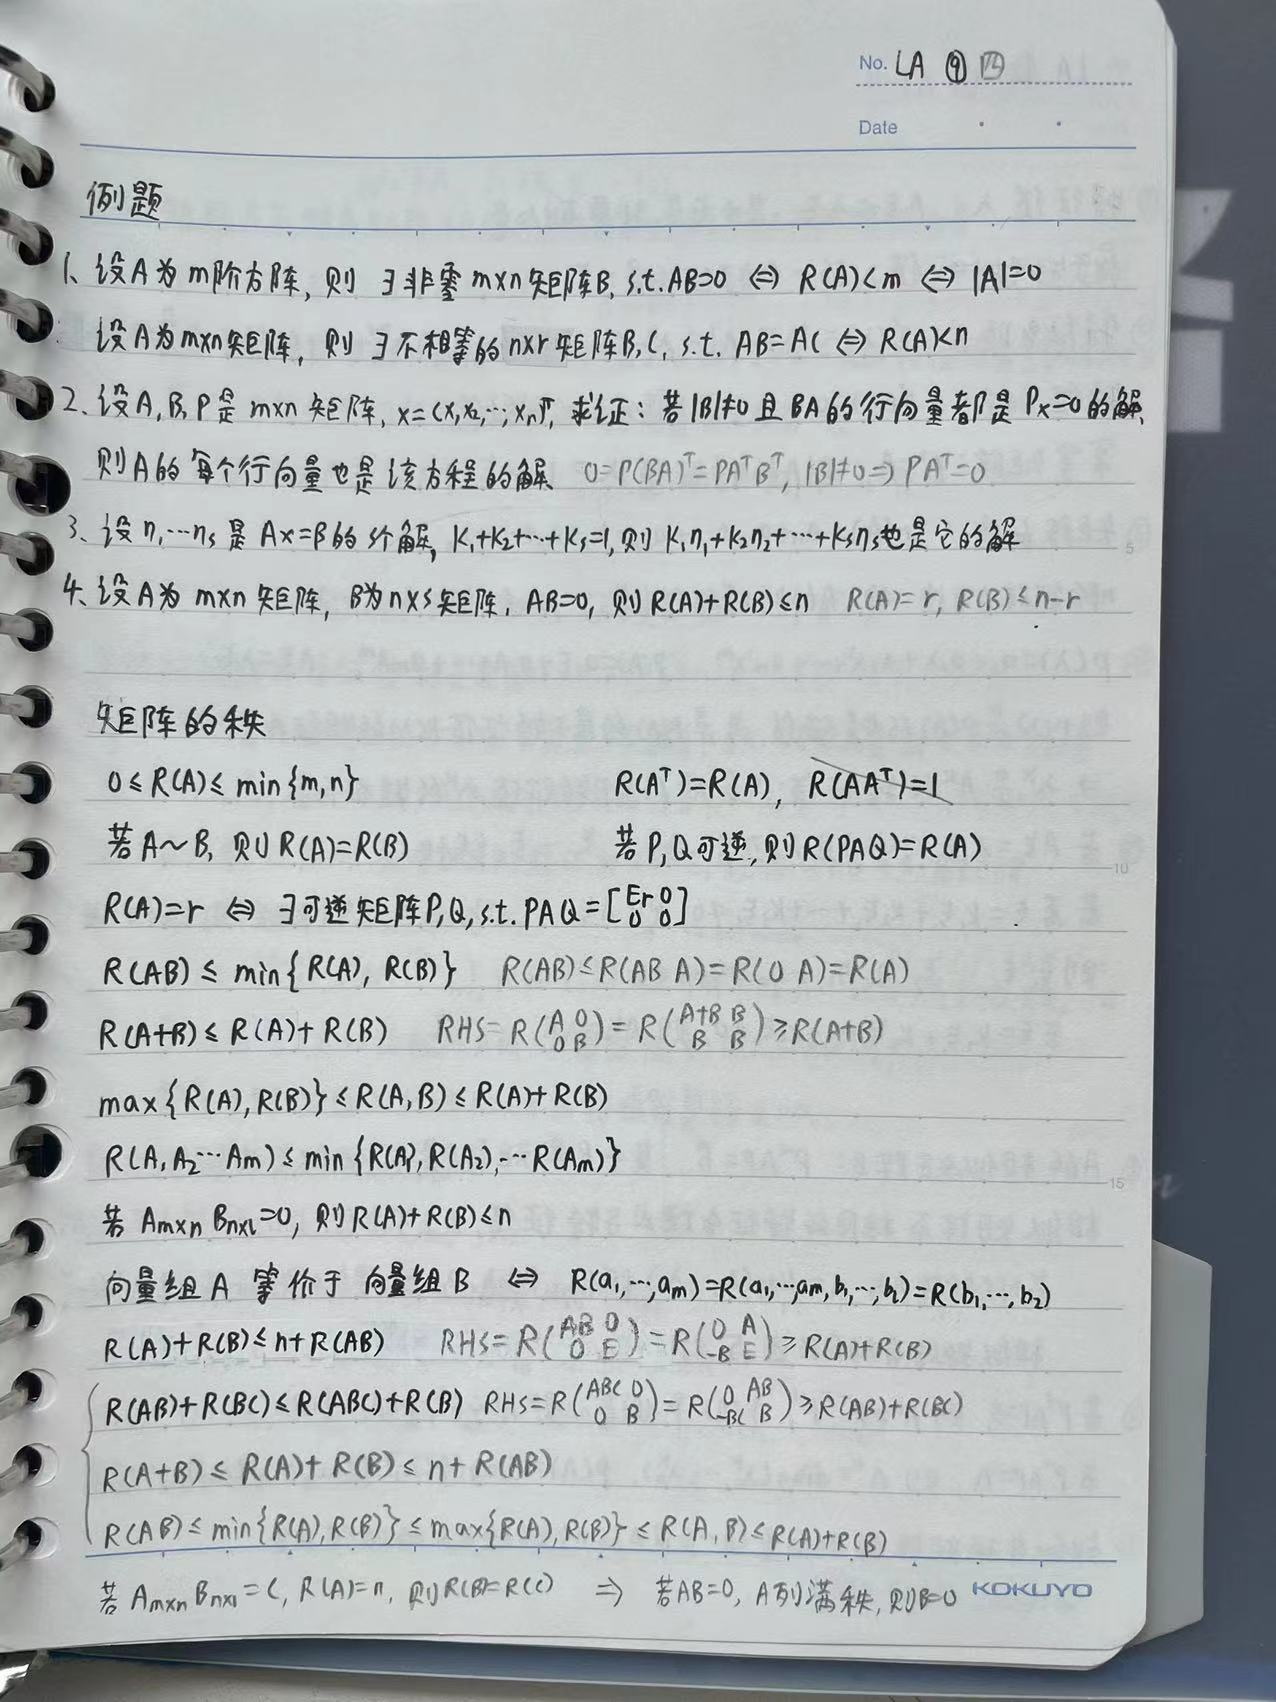 No. LA ⑨ 四
Date
例题
1、设A为m阶方阵, 则 ∃非零m×n矩阵B, s.t. AB=0 ⇔ R(A)<m ⇔ |A|=0
设A为m×n矩阵, 则 ∃不相等的n×r矩阵B,C, s.t. AB=AC ⇔ R(A)<n
2、设A,B,P是m×n矩阵, x=(x₁,x₂,…,xₙ)ᵀ, 求证: 若|B|≠0且BA的行向量都是Px=0的解,
则A的每个行向量也是该方程的解 0=P(BA)ᵀ=PAᵀBᵀ, |B|≠0⇒PAᵀ=0
3、设η₁…ηs是Ax=β的s个解, k₁+k₂+…+ks=1, 则k₁η₁+k₂η₂+…+ksηs也是它的解
4、设A为m×n矩阵, B为n×s矩阵, AB=0, 则R(A)+R(B)≤n R(A)=r, R(B)≤n-r
矩阵的秩
0≤R(A)≤min{m,n} R(Aᵀ)=R(A), R(AAᵀ)=1
若A~B, 则R(A)=R(B) 若P,Q可逆, 则R(PAQ)=R(A)
R(A)=r ⇔ ∃可逆矩阵P,Q, s.t. PAQ=[Er 0 0 0]
R(AB)≤min{R(A), R(B)} R(AB)≤R(AB A)=R(0 A)=R(A)
R(A+B)≤R(A)+R(B) RHS=R(A 0 0 B)=R(A+B B B B)≥R(A+B)
max{R(A),R(B)}≤R(A,B)≤R(A)+R(B)
R(A₁A₂…Am)≤min{R(A₁),R(A₂),…R(Am)}
若 Am×n Bn×l=0, 则R(A)+R(B)≤n
向量组A 等价于 向量组B ⇔ R(a₁,…,am)=R(a₁,…,am,b₁,…,bl)=R(b₁,…,bl)
R(A)+R(B)≤n+R(AB) RHS=R(AB 0 0 E)=R(0 A -B E)≥R(A)+R(B)
R(AB)+R(BC)≤R(ABC)+R(B) RHS=R(ABC 0 0 B)=R(0 AB -BC B)≥R(AB)+R(BC)
R(A+B)≤R(A)+R(B)≤n+R(AB)
R(AB)≤min{R(A),R(B)}≤max{R(A),R(B)}≤R(A,B)≤R(A)+R(B)
若 Am×n Bn×l=C, R(A)=n, 则R(B)=R(C) ⇒ 若AB=0, A列满秩, 则B=0 KOKUYO
5
10
15